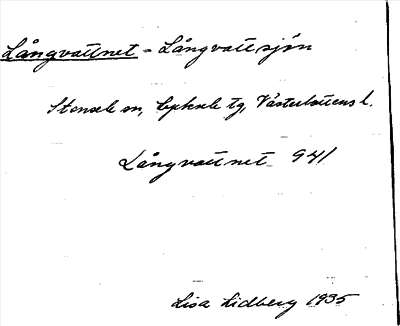 Långvattnet - Långvattsjön
Stensele sn, Lycksele tg, Västerbottens l.
Långvattnet 941
Lisa Lidberg 1935